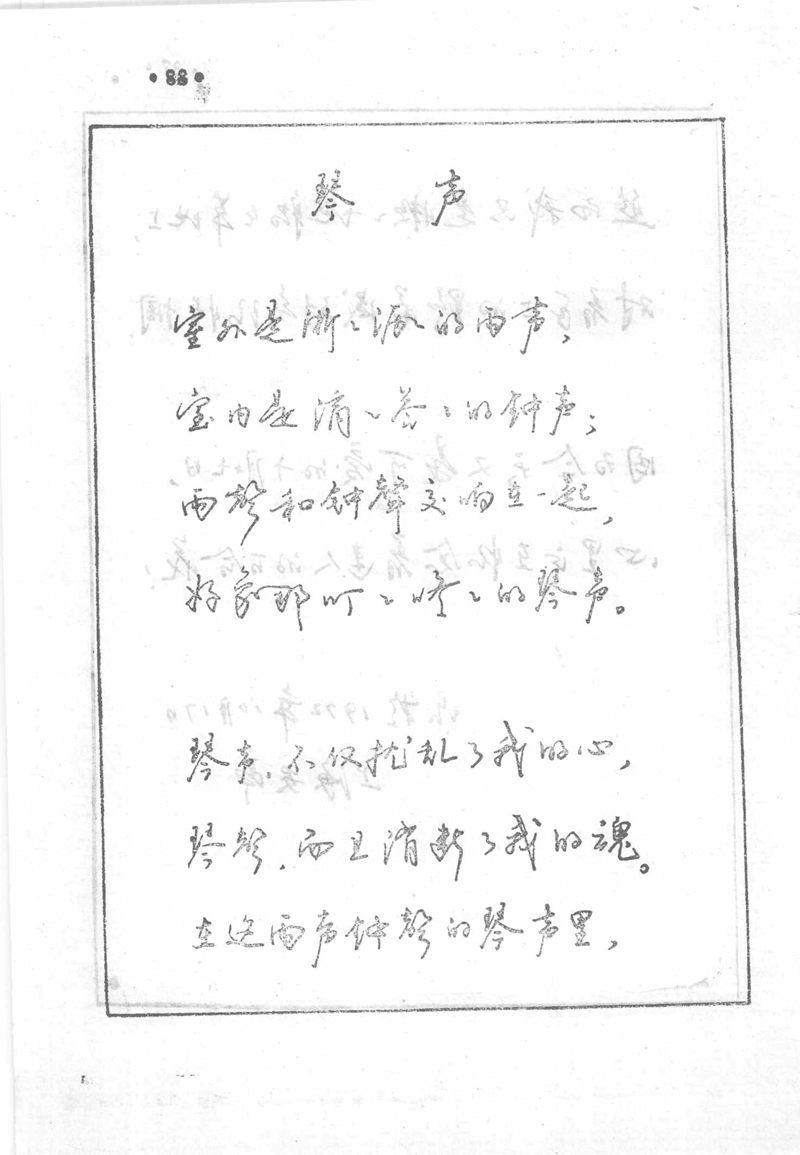 ·88·
琴声
室外是淅々沥々的雨声，
室内是滴々答々的钟声；
雨聲和钟聲交响在一起，
好象那叮々咚々的琴声。
琴声，不仅扰乱了我的心，
琴聲，而且消断了我的魂。
在这雨声钟聲的琴声里，